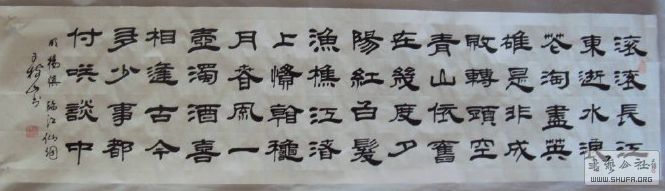 滚滚長江
東逝水浪
花淘盡英
雄是非成
敗轉頭空
青山依舊
在幾度夕
陽紅白髮
漁樵江渚
上慣看穐
月春風一
壺濁酒喜
相逢古今
多少事都
付咲談中
明楊慎臨江仙詞
书法公社
WWW.SHUFA.ORG